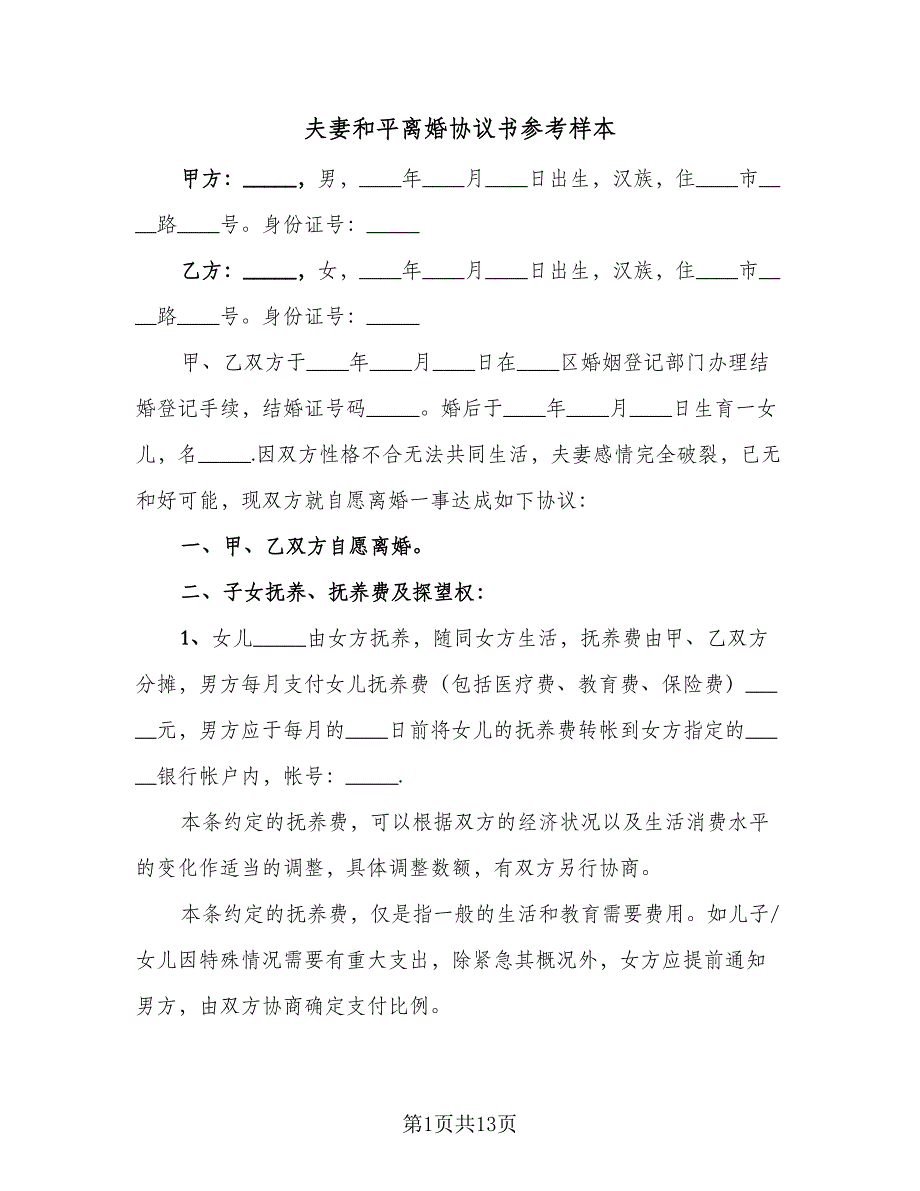 夫妻和平离婚协议书参考样本
甲方：_____，男，____年____月____日出生，汉族，住____市__
__路____号。身份证号：_____
乙方：_____，女，____年____月____日出生，汉族，住____市__
__路____号。身份证号：_____
甲、乙双方于____年____月____日在____区婚姻登记部门办理结
婚登记手续，结婚证号码_____。婚后于____年____月____日生育一女
儿，名_____.因双方性格不合无法共同生活，夫妻感情完全破裂，已无
和好可能，现双方就自愿离婚一事达成如下协议：
一、甲、乙双方自愿离婚。
二、子女抚养、抚养费及探望权：
1、女儿_____由女方抚养，随同女方生活，抚养费由甲、乙双方
分摊，男方每月支付女儿抚养费（包括医疗费、教育费、保险费）___
__元，男方应于每月的____日前将女儿的抚养费转帐到女方指定的___
__银行帐户内，帐号：_____.
本条约定的抚养费，可以根据双方的经济状况以及生活消费水平
的变化作适当的调整，具体调整数额，有双方另行协商。
本条约定的抚养费，仅是指一般的生活和教育需要费用。如儿子/
女儿因特殊情况需要有重大支出，除紧急其概况外，女方应提前通知
男方，由双方协商确定支付比例。
第1页共13页